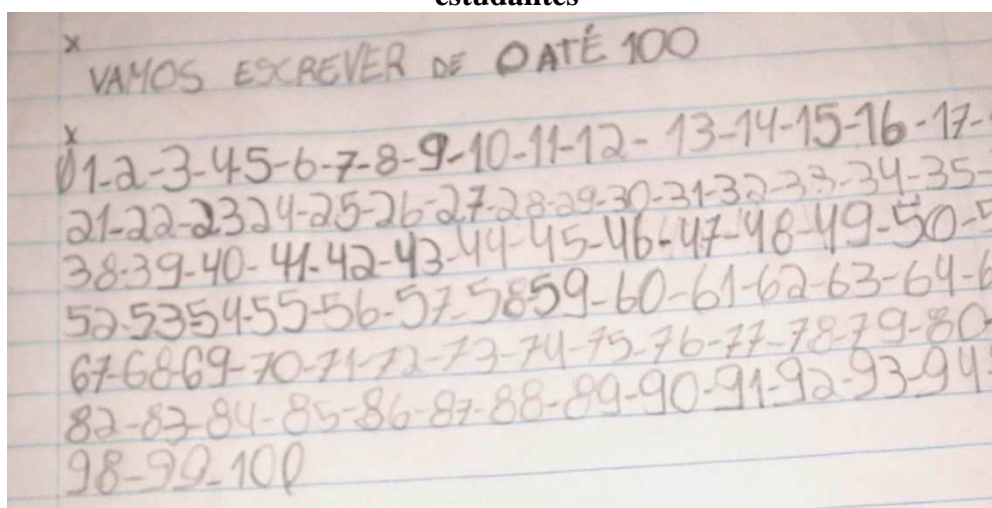 estudantes
x
VAMOS ESCREVER DE 0 ATÉ 100
x
0 1-2-3-4-5-6-7-8-9-10-11-12- 13-14-15-16-17-
21-22-23 24-25-26-27-28-29-30-31-32-33-34-35-
38-39-40-41-42-43-44-45-46-47-48-49-50-5
52-53 54-55-56-57-58 59-60-61-62-63-64-6
67-68-69-70-71-72-73-74-75-76-77-78-79-80-
82-83-84-85-86-87-88-89-90-91-92-93-94-
98-99-100